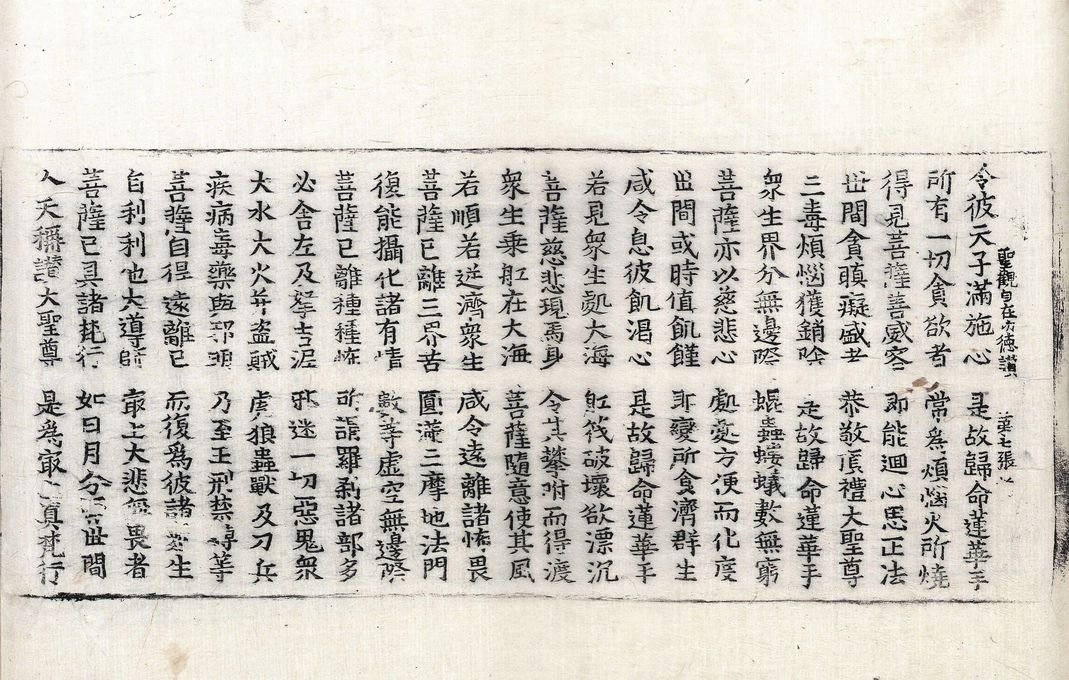 聖觀自在功德讚 第七張
令彼天子滿施心 是故歸命蓮華手
所有一切貪欲者 常為煩惱火所燒
得見菩薩善威容 即能迴心思正法
世間貪瞋癡盛者 恭敬頂禮大聖尊
三毒煩惱獲銷除 是故歸命蓮華手
衆生界分無邊際 蜫蟲螻蟻數無窮
菩薩亦以慈悲心 處處方便而化度
世間或時值飢饉 即變所食濟群生
咸令息彼飢渴心 是故歸命蓮華手
若見衆生處大海 舡筏破壞欲漂沉
菩薩慈悲現馬身 令其攀附而得渡
衆生乘舡在大海 菩薩隨意使其風
若順若逆濟衆生 咸令遠離諸怖畏
菩薩已離三界苦 圓滿三摩地法門
復能攝化諸有情 數等虛空無邊際
菩薩已離種種怖 所謂羅剎諸部多
必舍左及拏吉涅 邪迷一切惡鬼衆
大水大火并盜賊 虎狼蟲獸及刀兵
疾病毒藥與邪明 乃至王刑禁縛等
菩薩自得遠離已 而復為彼諸衆生
自利利他大導師 最上大悲無畏者
菩薩已具諸梵行 如日月分 世間
人天稱讚大聖尊 是為最上真梵行